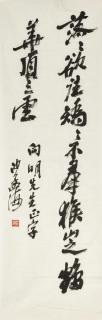 落〻欲往矯〻不羣緱山之鶴
華頂之雲
向明先生正字
沙孟海